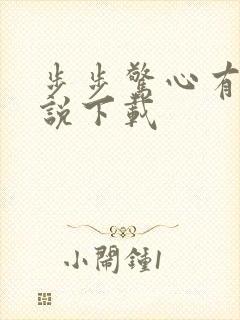 步步驚心有
說下載
小鬧鐘1